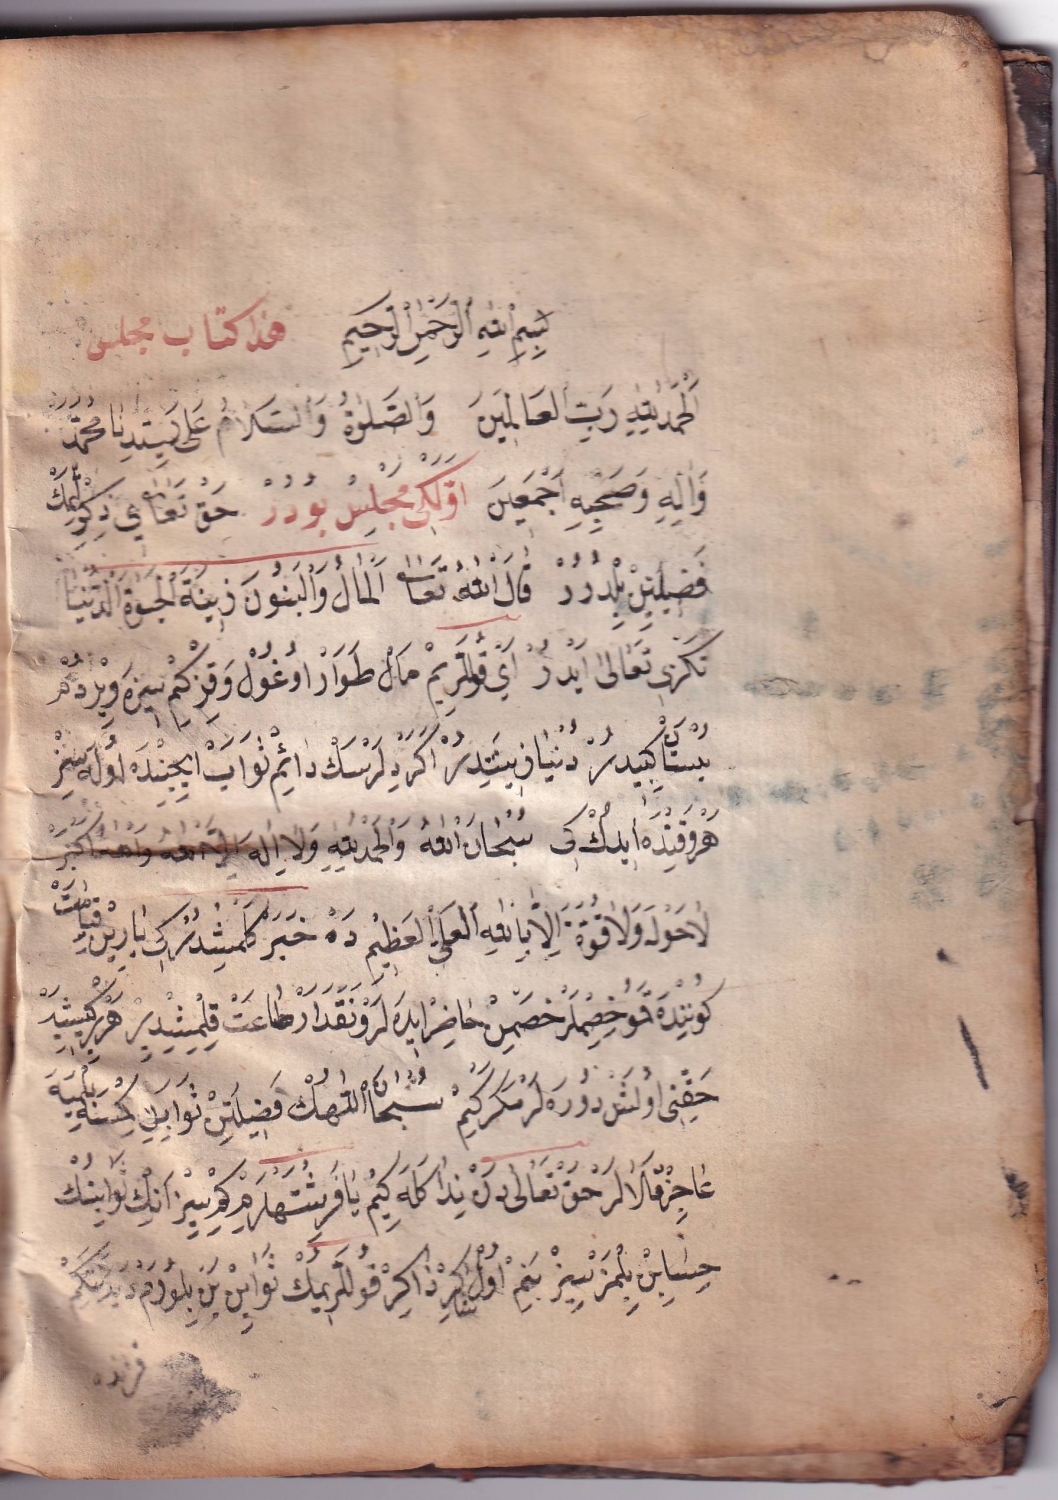 بِسْمِ اللهِ الرَّحْمٰنِ الرَّحِيمِ هذا كتاب مجلس
اَلْحَمْدُ لِلّٰهِ رَبِّ الْعَالَمِينَ وَالصَّلٰوةُ وَالسَّلَامُ عَلٰى سَيِّدِنَا مُحَمَّدٍ
وَاٰلِهِ وَصَحْبِهِ اَجْمَعِينَ اَوَّلْكِى مَجْلِسْ بُودُرْ حَقْ تَعَالٰى ذِكْرِ
فَضِيلَتِنْ بِلْدُرُرْ قَالَ اللهُ تَعَالٰى اَلْمَالُ وَالْبَنُونَ زِينَةُ الْحَيٰوةِ الدُّنْيَا
تَكْرِى تَعَالٰى اَيْدُرْ اَىْ قُولْلَرِيمْ مَالْ طَوَارْ اُوغُولْ وَقِزْ كِمْ سِيزَه وِيرْدُمْ
دُنْيَا زِينَتِدِرْ اَكَرْ دِلَرْسَكْ دَائِمْ ثَوَابْ اِيچِنْدَه اُولَسِزْ
هَرْ وَقِتْدَه اَيْدُكْ كِى سُبْحَانَ اللهِ وَالْحَمْدُ لِلّٰهِ وَلَا اِلٰهَ اِلَّا اللهُ وَاللهُ اَكْبَرُ
لَا حَوْلَ وَلَا قُوَّةَ اِلَّا بِاللهِ الْعَلِىِّ الْعَظِيمِ دَه خَبَرْ كَلْمِشْدُرْ كِى يَارِينْ قِيَامَتْ
كُونِنْدَه خَصْمِنْ حَاضِرْ اِيدَه لَرْ نَقَدَارْ طَاعَتْ قِلْمِشِيدِرْ هَرْ كِشِيدَرْ
حَقِّنِى اُولَشْدُورَه لَرْ مَكَرْ كِمْ سُبْحَانَ اللهْكْ فَضِيلَتِنْ ثَوَابِلَه كِمْسَنَه
عَاجِزْ قَالَالَرْ حَقْ تَعَالٰى دَنْ نِدَا كَلَه كِيمْ يَا فَرِشْتَهْلَرِمْ سِيزْ اَنِكْ ثَوَابِنُكْ
حِسَابِنْ بِلْمَزْسِيزْ بَنِمْ اُولْ ذَاكِرْ قُولْلَرِيمُكْ ثَوَابِنْ بَنْ بِلُورَمْ